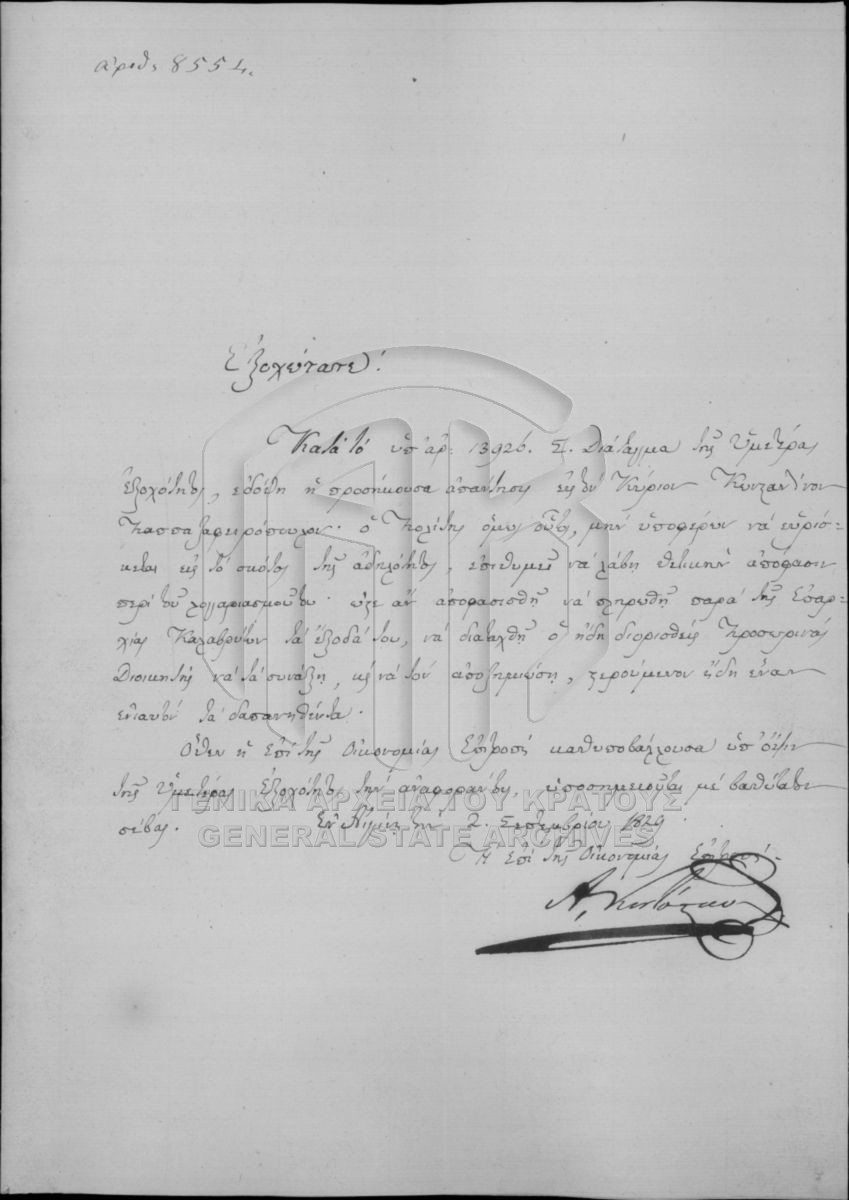 ἀριθ. 8554.
Ἐξοχώτατε!
Κατὰ τὸ ὑπ' ἀρ: 13926. Σ. Διάταγμα τῆς Ὑμετέρας
Ἐξοχότητος, ἐδόθη ἡ προσήκουσα ἀπάντησις εἰς τὸν Κύριον Κωνσταντῖνον
Παππαζαφειρόπουλον· ὁ Πολίτης ὅμως οὗτος, μὴν ὑποφέρων νὰ εὑρίσ-
κεται εἰς τὸ σκότος τῆς ἀδηλότητος, ἐπιθυμεῖ νὰ λάβῃ θετικὴν ἀπόφασιν
περὶ τοῦ λογαριασμοῦ του· ὥστε ἂν ἀποφασισθῇ νὰ πληρωθῇ παρὰ τῆς Ἐπαρ-
χίας Καλαβρύτων τὰ ἔξοδά του, νὰ διαταχθῇ ὁ ἤδη διορισθεὶς Προσωρινὸς
Διοικητὴς νὰ τὰ συνάξῃ, κὶ νὰ τὸν ἀποζημιώσῃ, ξερούμενον ἤδη ἕναν
ἐνιαυτὸν τὰ δαπανηθέντα.
Ὅθεν ἡ Ἐπὶ τῆς Οἰκονομίας Ἐπιτροπὴ καθυποβάλλουσα ὑπ' ὄψιν
τῆς Ὑμετέρας Ἐξοχότητος τὴν ἀναφοράν της, ὑποσημειοῦται μὲ βαθύτατον
σέβας. Ἐν Αἰγίνῃ τὴν 2. Σεπτεμβρίου 1829
Ἡ Ἐπὶ τῆς Οἰκονομίας Ἐπιτροπή.
Α. Κοντόσταυλος
ΓΕΝΙΚΑ ΑΡΧΕΙΑ ΤΟΥ ΚΡΑΤΟΥΣ
GENERAL STATE ARCHIVES